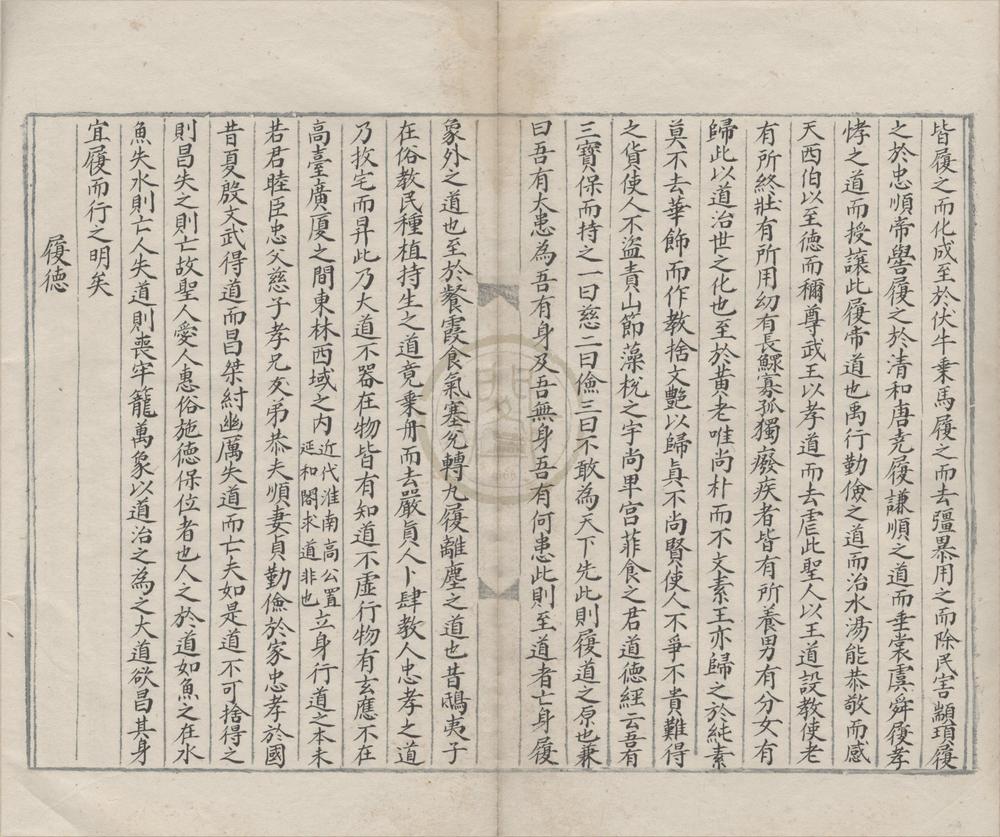 皆履之而化成至於伏牛乗馬履之而去彊暴用之而除民害顓頊履
之於忠順帝嚳履之於清和唐堯履謙順之道而垂裳虞舜履孝
悌之道而授讓此履帝道也禹行勤儉之道而治水湯能恭敬而感
天西伯以至徳而稱尊武王以孝道而去虐此聖人以王道設教使老
有所終壯有所用幼有長鰥寡孤獨癈疾者皆有所養男有分女有
歸此以道治世之化也至於黄老唯尚朴而不文素王亦歸之於純素
莫不去華飾而作教捨文艶以歸真不尚賢使人不爭不貴難得
之貨使人不盗責山節藻梲之宇尚卑宮菲食之君道徳經云吾有
三寳保而持之一曰慈二曰儉三曰不敢為天下先此則履道之原也兼
曰吾有大患為吾有身及吾無身吾有何患此則至道者亡身履
象外之道也至於餐霞食氣塞兊轉九履離塵之道也昔鴟夷子
在俗教民種植持生之道竟乗舟而去嚴真人卜肆教人忠孝之道
乃拔宅而昇此乃大道不器在物皆有知道不虚行物有玄應不在
高臺廣厦之間東林西域之内近代淮南高公置延和閣求道非也立身行道之本未
若君睦臣忠父慈子孝兄友弟恭夫順妻貞勤儉於家忠孝於國
昔夏殷文武得道而昌桀紂幽厲失道而亡夫如是道不可捨得之
則昌失之則亡故聖人愛人惠俗施徳保位者也人之於道如魚之在水
魚失水則亡人失道則喪牢籠萬象以道治之為之大道欲昌其身
宜履而行之明矣
履徳